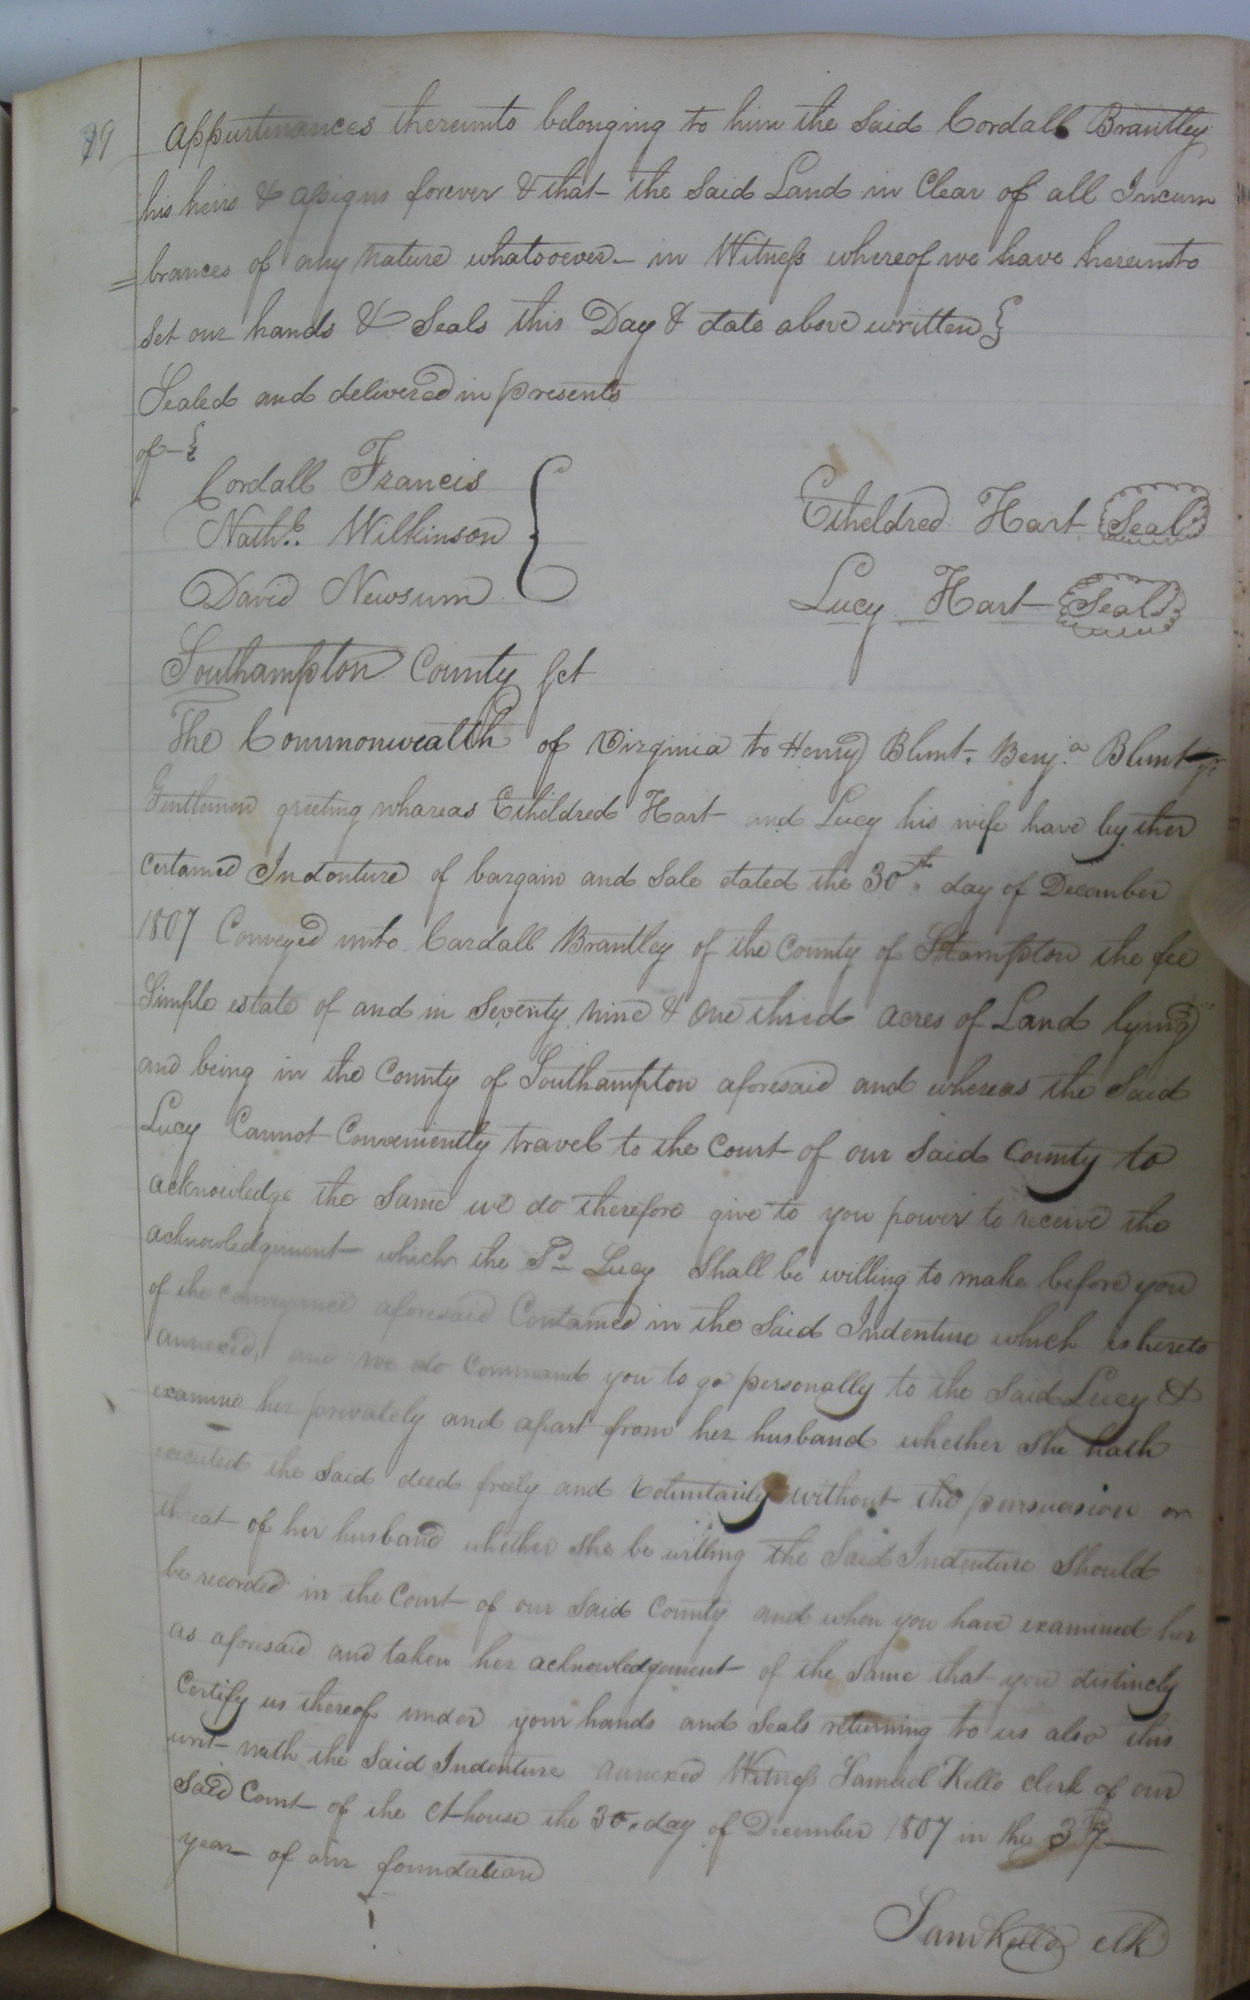 39
appurtinances thereunto belonging to him the Said Cordall Brantley
his heirs & assigns forever & that the Said Land in Clear of all Incum
= brances of any nature whatsoever - in Witness whereof we have hereunto
Set our hands & Seals this Day & date above written }
Sealed and delivered in presents
of - {
Cordall Francis
Nathl. Wilkinson
David Newsum
Etheldred Hart Seal
Lucy Hart Seal
Southampton County Sct
The Commonwealth of Virginia to Henry Blunt. Benja. Blunt
Gentlemen greeting whareas Etheldred Hart and Lucy his wife have by ther
certained Indenture of bargain and Sale dated the 30th. day of December
1807 Conveyed unto Cardall Brantley of the County of SHampton the fee
Simple estate of and in Seventy nine & One third acres of Land lying
and being in the County of Southampton aforesaid and whereas the Said
Lucy Cannot Conveniently travel to the Court of our Said County to
acknowledge the Same we do therefore give to you power to receive the
acknowledgement which the Sd Lucy Shall be willing to make before you
of the conveyance aforesaid Contained in the Said Indenture which is hereto
annexed, and we do Command you to go personally to the Said Lucy &
examine her privately and apart from her husband whether She hath
executed the Said deed freely and Voluntarily without the persuasion or
threat of her husband whether she be willing the Said Indenture Should
be recorded in the Court of our Said County and when you have examined her
as aforesaid and taken her acknowledgement of the Same that you distincly
Certify us thereof under your hands and Seals returning to us also this
writ with the Said Indenture annexed Witness Samuel Kello clerk of our
Said Court of the Ct house the 30. day of December 1807 in the 32
year of our foundation
Saml Kello clk